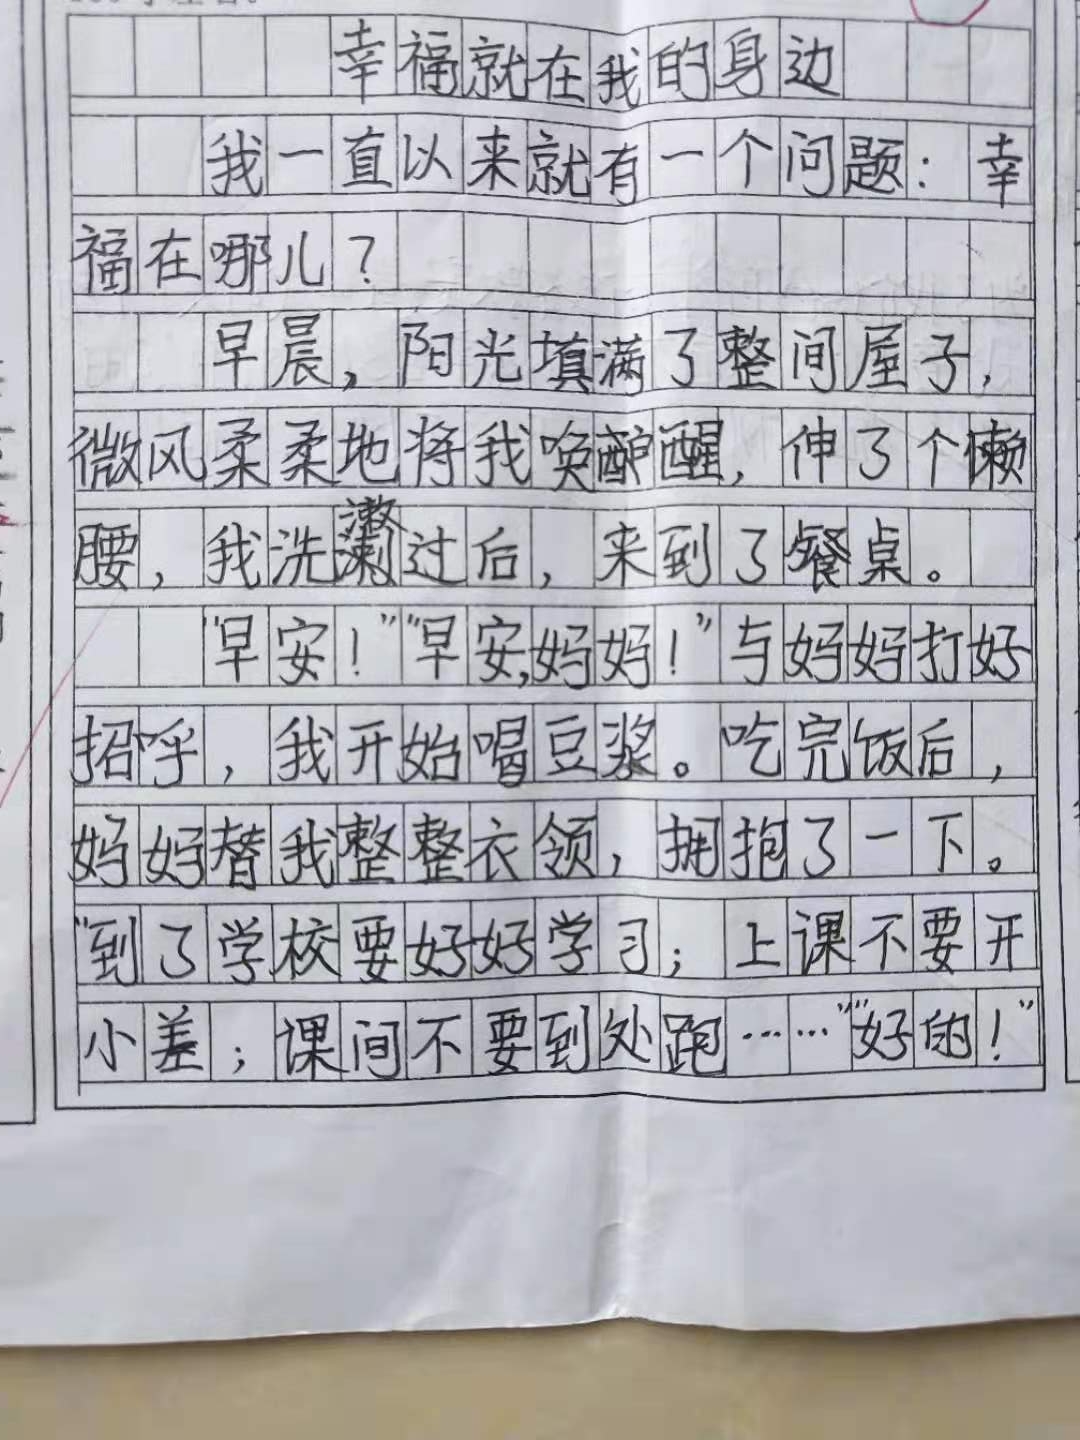 幸福就在我的身边
我一直以来就有一个问题：幸
福在哪儿？
早晨，阳光填满了整间屋子，
微风柔柔地将我唤醒，伸了个懒
腰，我洗漱过后，来到了餐桌。
“早安！”“早安，妈妈！”与妈妈打好
招呼，我开始喝豆浆。吃完饭后，
妈妈替我整整衣领，拥抱了一下。
“到了学校要好好学习；上课不要开
小差；课间不要到处跑……”“好的！”